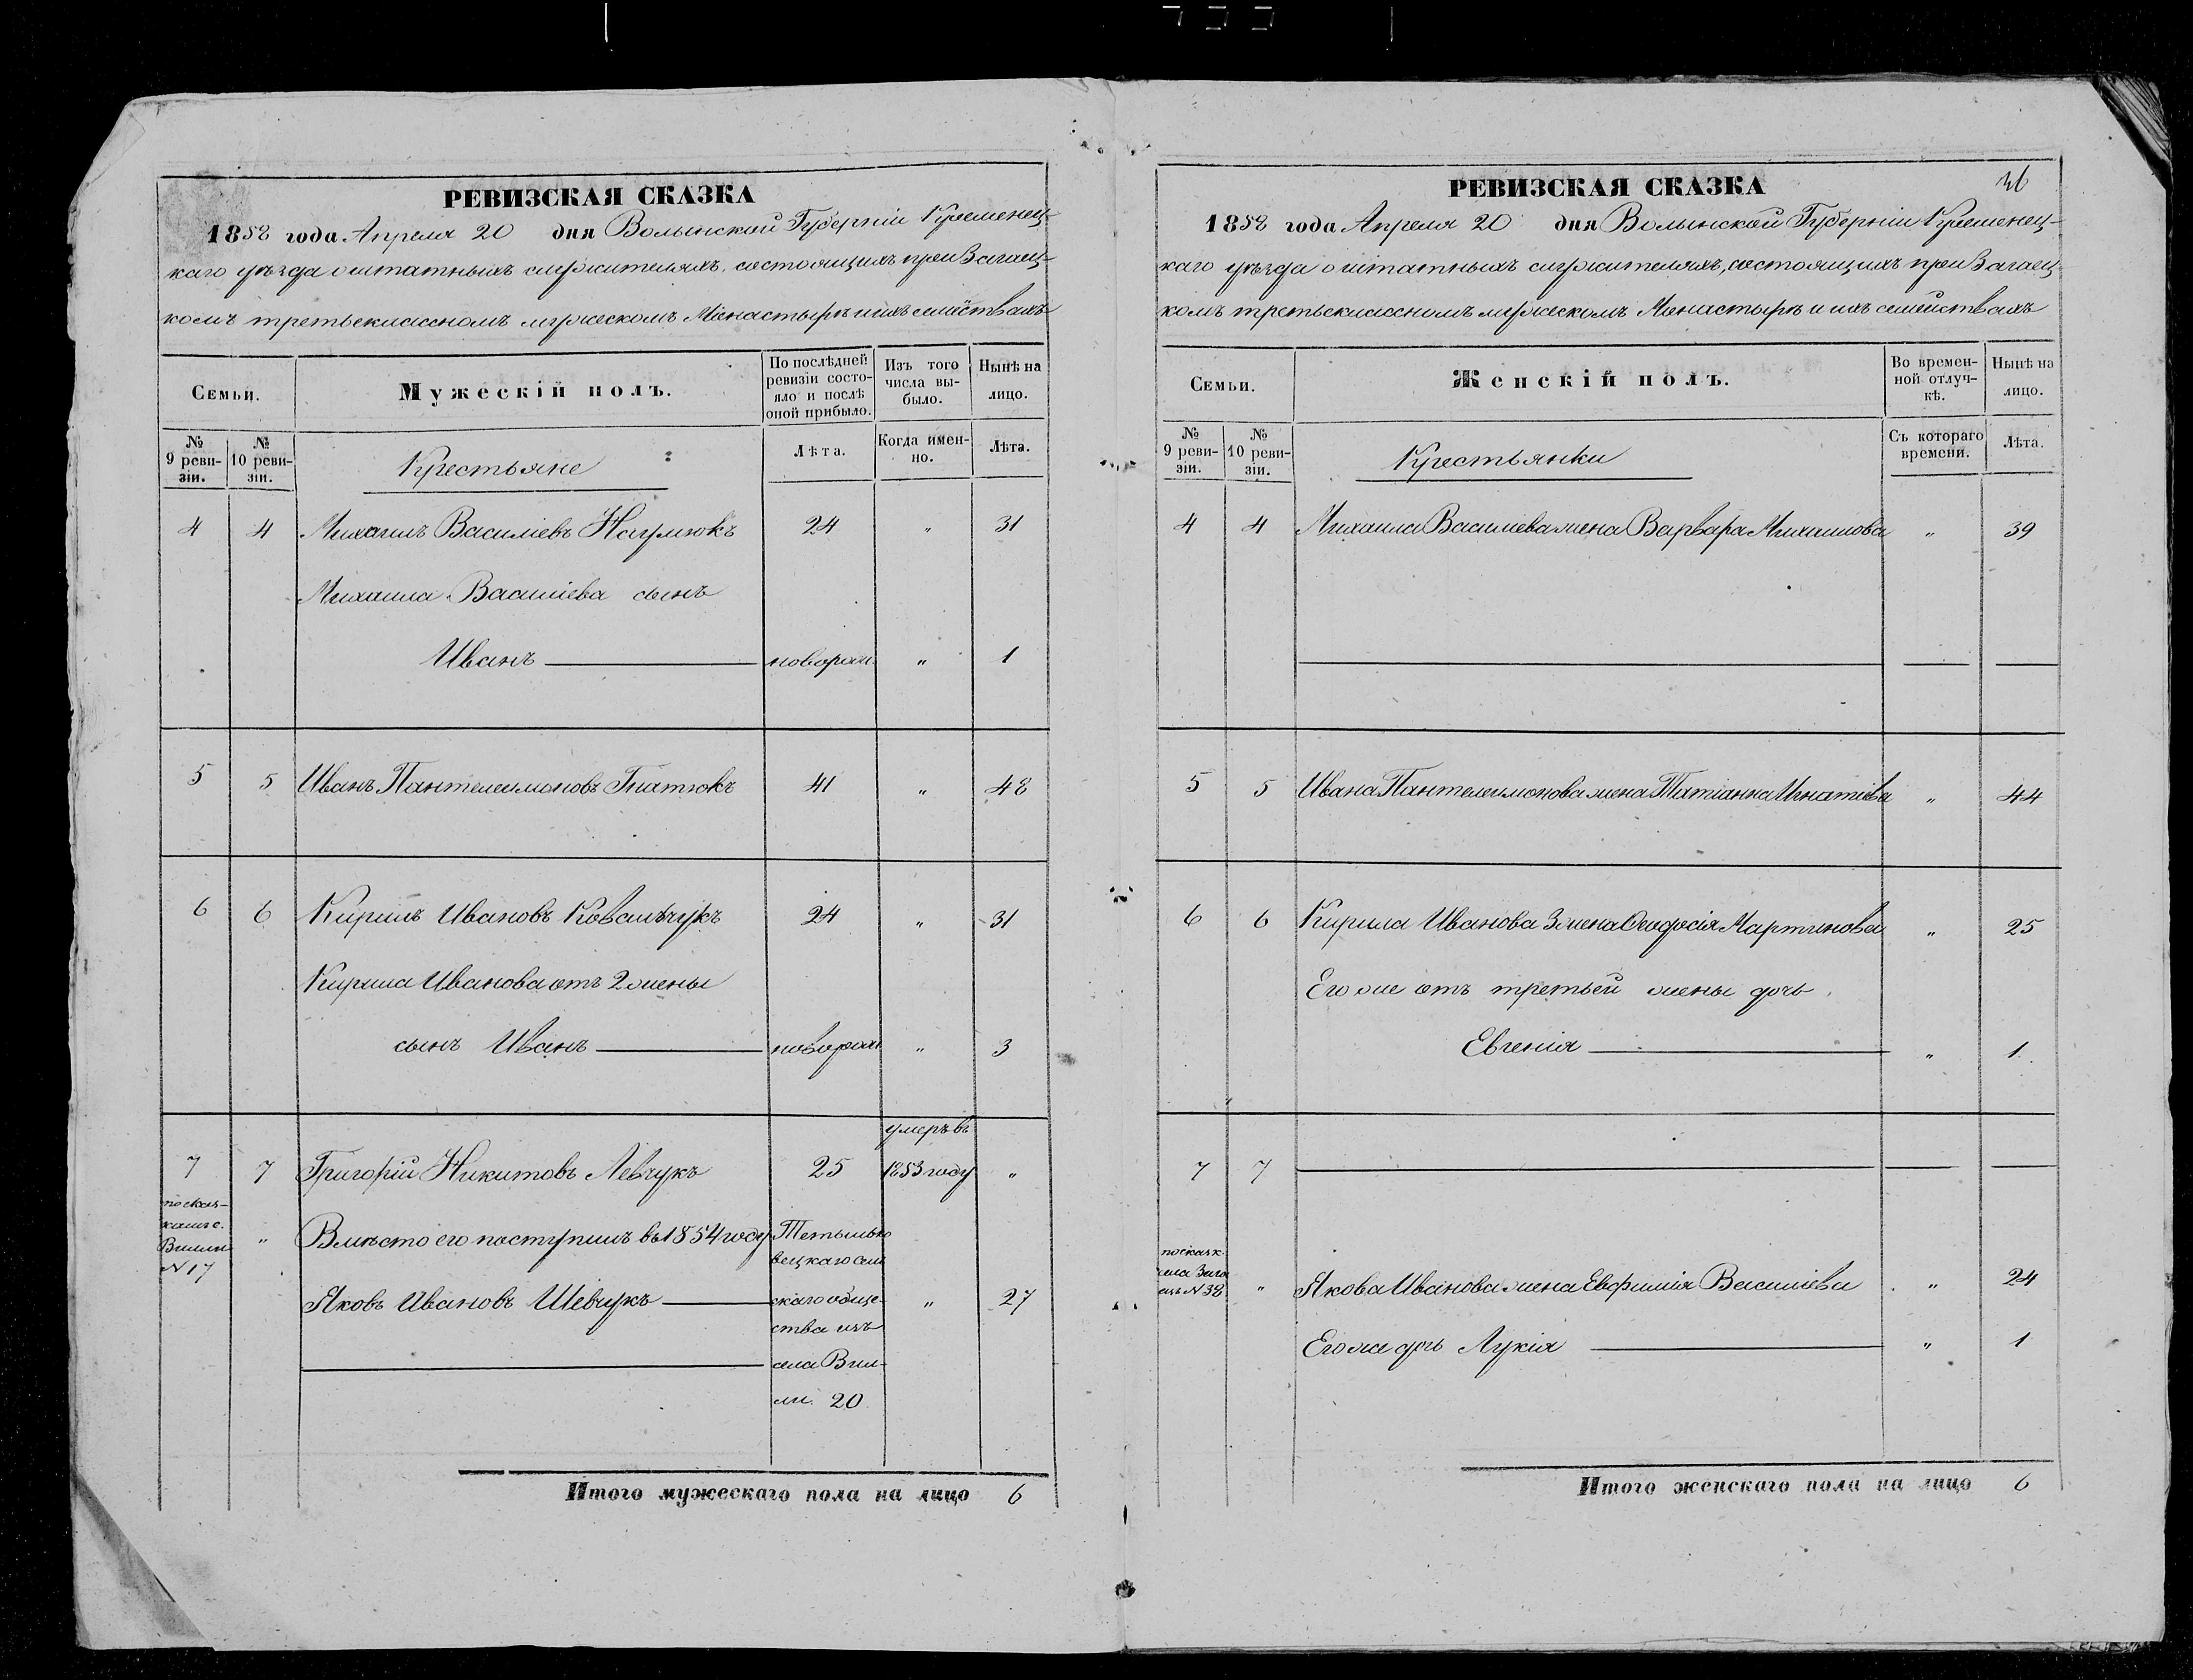 РЕВИЗСКАЯ СКАЗКА
1858 года Апреля 20 дня Волынской Губерніи Кременец-
каго уѣзда о штатныхъ служителяхъ, состоящихъ при Загаец-
комъ третьеклассномъ мужескомъ Монастырѣ и ихъ семействахъ
Семьи.
Мужескій полъ.
По послѣдней ревизіи состо-
яло и послѣ оной прибыло.
Изъ того числа вы-
было.
Нынѣ на лицо.
№ 9 реви-
зіи.
№ 10 реви-
зіи.
Крестьяне
Лѣта.
Когда имен-
но.
Лѣта.
4 4 Михаилъ Василіевъ 24 " 31
Михаила Василіева сынъ
Иванъ новорож. " 1
5 5 Иванъ Пантелеимоновъ Гнатюкъ 41 " 48
6 6 Кирилъ Ивановъ Ковальчукъ 24 " 31
Кирила Иванова отъ 2 жены
сынъ Иванъ новорож " 3
умеръ въ
7 7 Григорій Никитовъ Левчукъ 25 1853 году "
по сказ-
N 17
" Вмѣсто его поступилъ въ 1854 году
Яковъ Ивановъ Шевчукъ " 27
вецкаго сель
скаго обще-
ства изъ
села Вил-
ли 20
Итого мужескаго пола на лицо 6
РЕВИЗСКАЯ СКАЗКА 36
1858 года Апреля 20 дня Волынской Губерніи Кременец-
каго уѣзда о штатныхъ служителяхъ, состоящихъ при Загаец-
комъ третьеклассномъ мужескомъ Монастырѣ и ихъ семействахъ
Семьи.
Женскій полъ.
Во времен-
ной отлуч-
кѣ.
Нынѣ на лицо.
№ 9 реви-
зіи.
№ 10 реви-
зіи.
Крестьянки
Съ котораго времени.
Лѣта.
4 4 Михаила Василіева жена Варвара Михаилова " 39
5 5 Ивана Пантелеимонова жена Татіанна Игнатіева " 44
6 6 Кирила Иванова 3 жена Феодосія Мартинова " 25
Его же отъ третьей жены дочь
Евгенія " 1
7 7
по сказк.
села Загa
ецъ N 38
" Якова Иванова жена Евфимія Василіева " 24
Его же дочь Лукія " 1
Итого женскаго пола на лицо 6